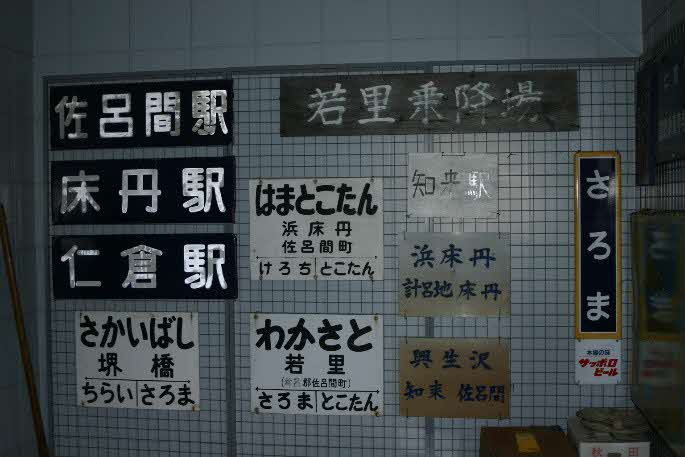 佐呂間駅
床丹駅
仁倉駅
さかいばし
堺橋
ちらい さろま
若里乗降場
はまとこたん
浜床丹
佐呂間町
けろち とこたん
わかさと
若里
(常呂郡佐呂間町)
さろま とこたん
知来駅
浜床丹
計呂地 床丹
興生沢
知来 佐呂間
さろま
本場の味
サッポロ
ビール
秋田